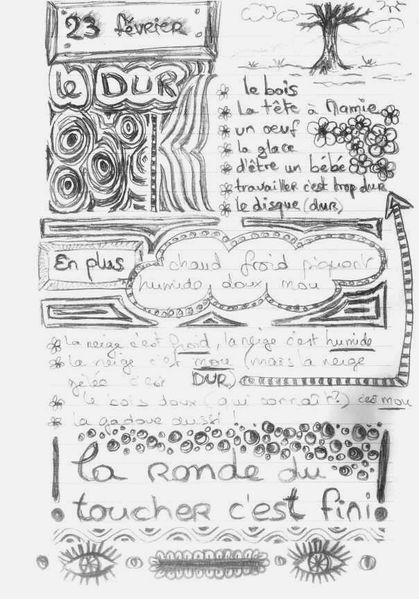 23 février
le DUR
le bois
La tête à Mamie
un oeuf
la glace
d'être un bébé
travailler c'est trop dur
le disque (dur)
En plus
chaud froid piquant
humide doux mou
La neige c'est froid, la neige c'est humide
La neige c'est mou (mais la neige
gelée c'est DUR)
le bois doux (qui connaît?) c'est mou
la gadoue aussi !
la Ronde du
toucher c'est fini